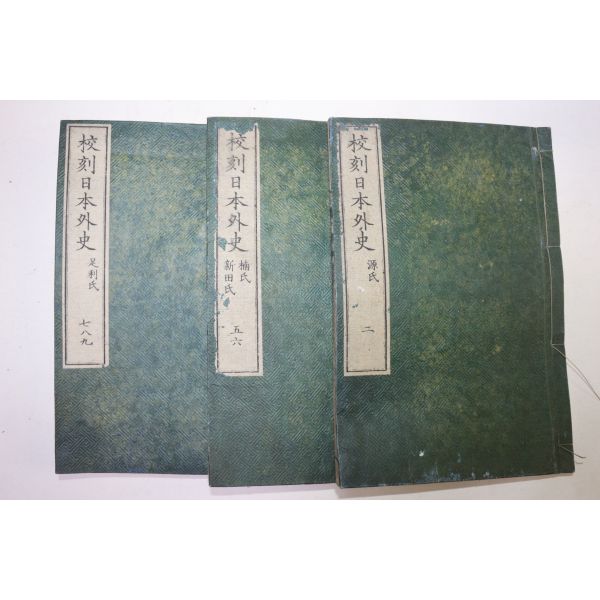 校刻日本外史
源氏
二
校刻日本外史
楠氏
新田氏
五六
校刻日本外史
足利氏
七八九